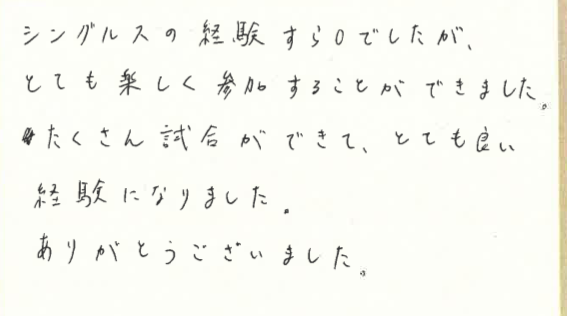 シングルスの経験すら0でしたが、
とても楽しく参加することができました。
たくさん試合ができて、とても良い
経験になりました。
ありがとうございました。